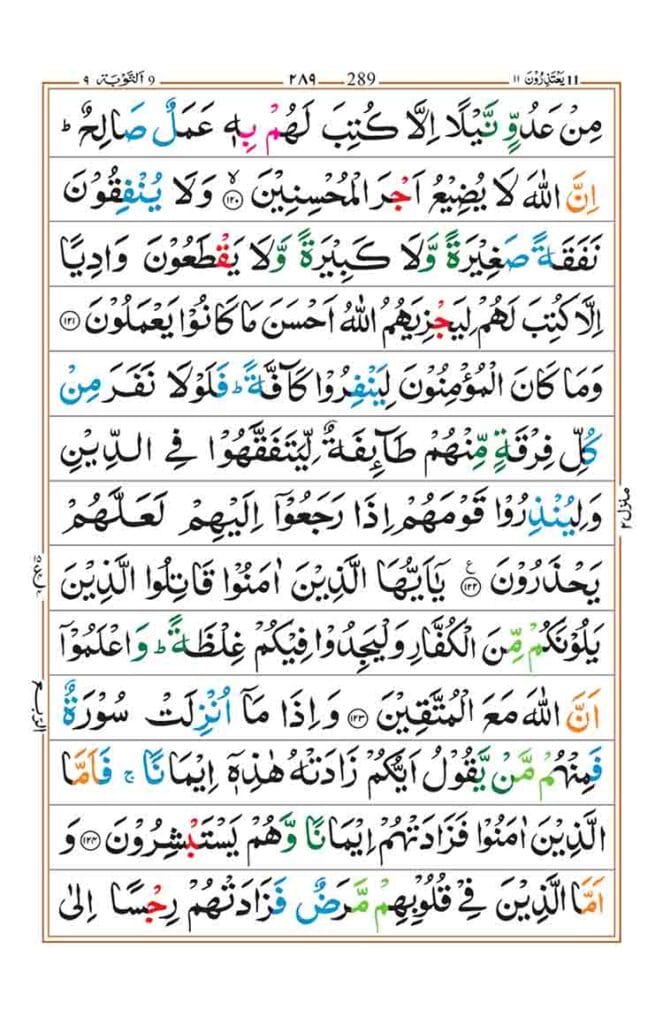 يَعْتَذِرُوْنَ ١١ 289 ٢٨٩ اَلتَّوْبَة ٩
مِنْ عَدُوٍّ نَّيْلًا اِلَّا كُتِبَ لَهُمْ بِهٖ عَمَلٌ صَالِحٌ ؕ
اِنَّ اللّٰهَ لَا يُضِيْعُ اَجْرَ الْمُحْسِنِيْنَ ۙ‏﴿۱۲۰﴾ وَلَا يُنْفِقُوْنَ
نَفَقَةً صَغِيْرَةً وَّلَا كَبِيْرَةً وَّلَا يَقْطَعُوْنَ وَادِيًا
اِلَّا كُتِبَ لَهُمْ لِيَجْزِيَهُمُ اللّٰهُ اَحْسَنَ مَا كَانُوْا يَعْمَلُوْنَ ﴿۱۲۱﴾
وَمَا كَانَ الْمُؤْمِنُوْنَ لِيَنْفِرُوْا كَآفَّةً ؕ فَلَوْلَا نَفَرَ مِنْ
كُلِّ فِرْقَةٍ مِّنْهُمْ طَآئِفَةٌ لِّيَتَفَقَّهُوْا فِى الدِّيْنِ
وَلِيُنْذِرُوْا قَوْمَهُمْ اِذَا رَجَعُوْۤا اِلَيْهِمْ لَعَلَّهُمْ
يَحْذَرُوْنَ ﴿۱۲۲﴾ ع يٰۤاَيُّهَا الَّذِيْنَ اٰمَنُوْا قَاتِلُوا الَّذِيْنَ
يَلُوْنَكُمْ مِّنَ الْكُفَّارِ وَلْيَجِدُوْا فِيْكُمْ غِلْظَةً ؕ وَاعْلَمُوْۤا
اَنَّ اللّٰهَ مَعَ الْمُتَّقِيْنَ ﴿۱۲۳﴾ وَاِذَا مَاۤ اُنْزِلَتْ سُوْرَةٌ
فَمِنْهُمْ مَّنْ يَّقُوْلُ اَيُّكُمْ زَادَتْهُ هٰذِهٖۤ اِيْمَانًا ۚ فَاَمَّا
الَّذِيْنَ اٰمَنُوْا فَزَادَتْهُمْ اِيْمَانًا وَّهُمْ يَسْتَبْشِرُوْنَ ﴿۱۲۴﴾ وَ
اَمَّا الَّذِيْنَ فِىْ قُلُوْبِهِمْ مَّرَضٌ فَزَادَتْهُمْ رِجْسًا اِلٰى
منزل ٢
الربع